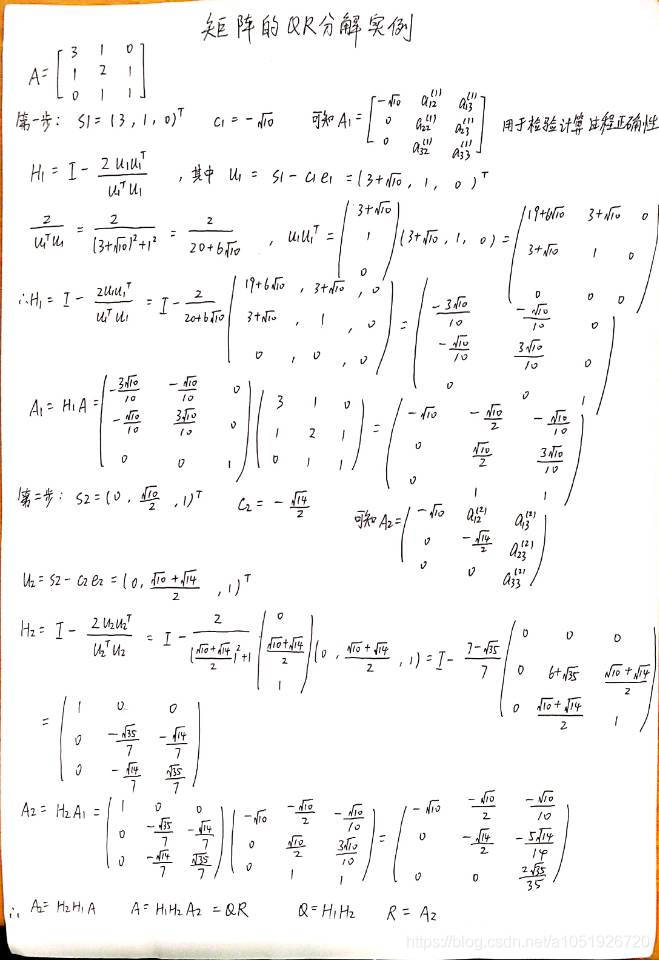 矩阵的QR分解实例
A = [3 1 0; 1 2 1; 0 1 1]
第一步: S1 = (3, 1, 0)ᵀ C1 = -√10 可知 A1 = [-√10 a12⁽¹⁾ a13⁽¹⁾; 0 a22⁽¹⁾ a23⁽¹⁾; 0 a32⁽¹⁾ a33⁽¹⁾] 用于检验计算过程正确性
H1 = I - 2u1u1ᵀ/u1ᵀu1 , 其中 u1 = S1 - C1e1 = (3+√10, 1, 0)ᵀ
2/u1ᵀu1 = 2/((3+√10)²+1²) = 2/(20+6√10) , u1u1ᵀ = (3+√10; 1; 0)(3+√10, 1, 0) = (19+6√10 3+√10 0; 3+√10 1 0; 0 0 0)
∴H1 = I - 2u1u1ᵀ/u1ᵀu1 = I - 2/(20+6√10) (19+6√10, 3+√10, 0; 3+√10, 1, 0; 0, 0, 0) = (-3√10/10 -√10/10 0; -√10/10 3√10/10 0; 0 0 1)
A1 = H1A = (-3√10/10 -√10/10 0; -√10/10 3√10/10 0; 0 0 1)(3 1 0; 1 2 1; 0 1 1) = (-√10 -√10/2 -√10/10; 0 √10/2 3√10/10; 0 1 1)
第二步: S2 = (0, √10/2, 1)ᵀ C2 = -√14/2 可知 A2 = (-√10 a12⁽²⁾ a13⁽²⁾; 0 -√14/2 a23⁽²⁾; 0 0 a33⁽²⁾)
u2 = S2 - C2e2 = (0, (√10+√14)/2, 1)ᵀ
H2 = I - 2u2u2ᵀ/u2ᵀu2 = I - 2/(((√10+√14)/2)²+1) (0; (√10+√14)/2; 1)(0, (√10+√14)/2, 1) = I - (7-√35)/7 (0 0 0; 0 6+√35 (√10+√14)/2; 0 (√10+√14)/2 1)
= (1 0 0; 0 -√35/7 -√14/7; 0 -√14/7 √35/7)
A2 = H2A1 = (1 0 0; 0 -√35/7 -√14/7; 0 -√14/7 √35/7)(-√10 -√10/2 -√10/10; 0 √10/2 3√10/10; 0 1 1) = (-√10 -√10/2 -√10/10; 0 -√14/2 -5√14/14; 0 0 2√35/35)
∴ A2 = H2H1A A = H1H2A2 = QR Q = H1H2 R = A2
https://blog.csdn.net/a1051926720